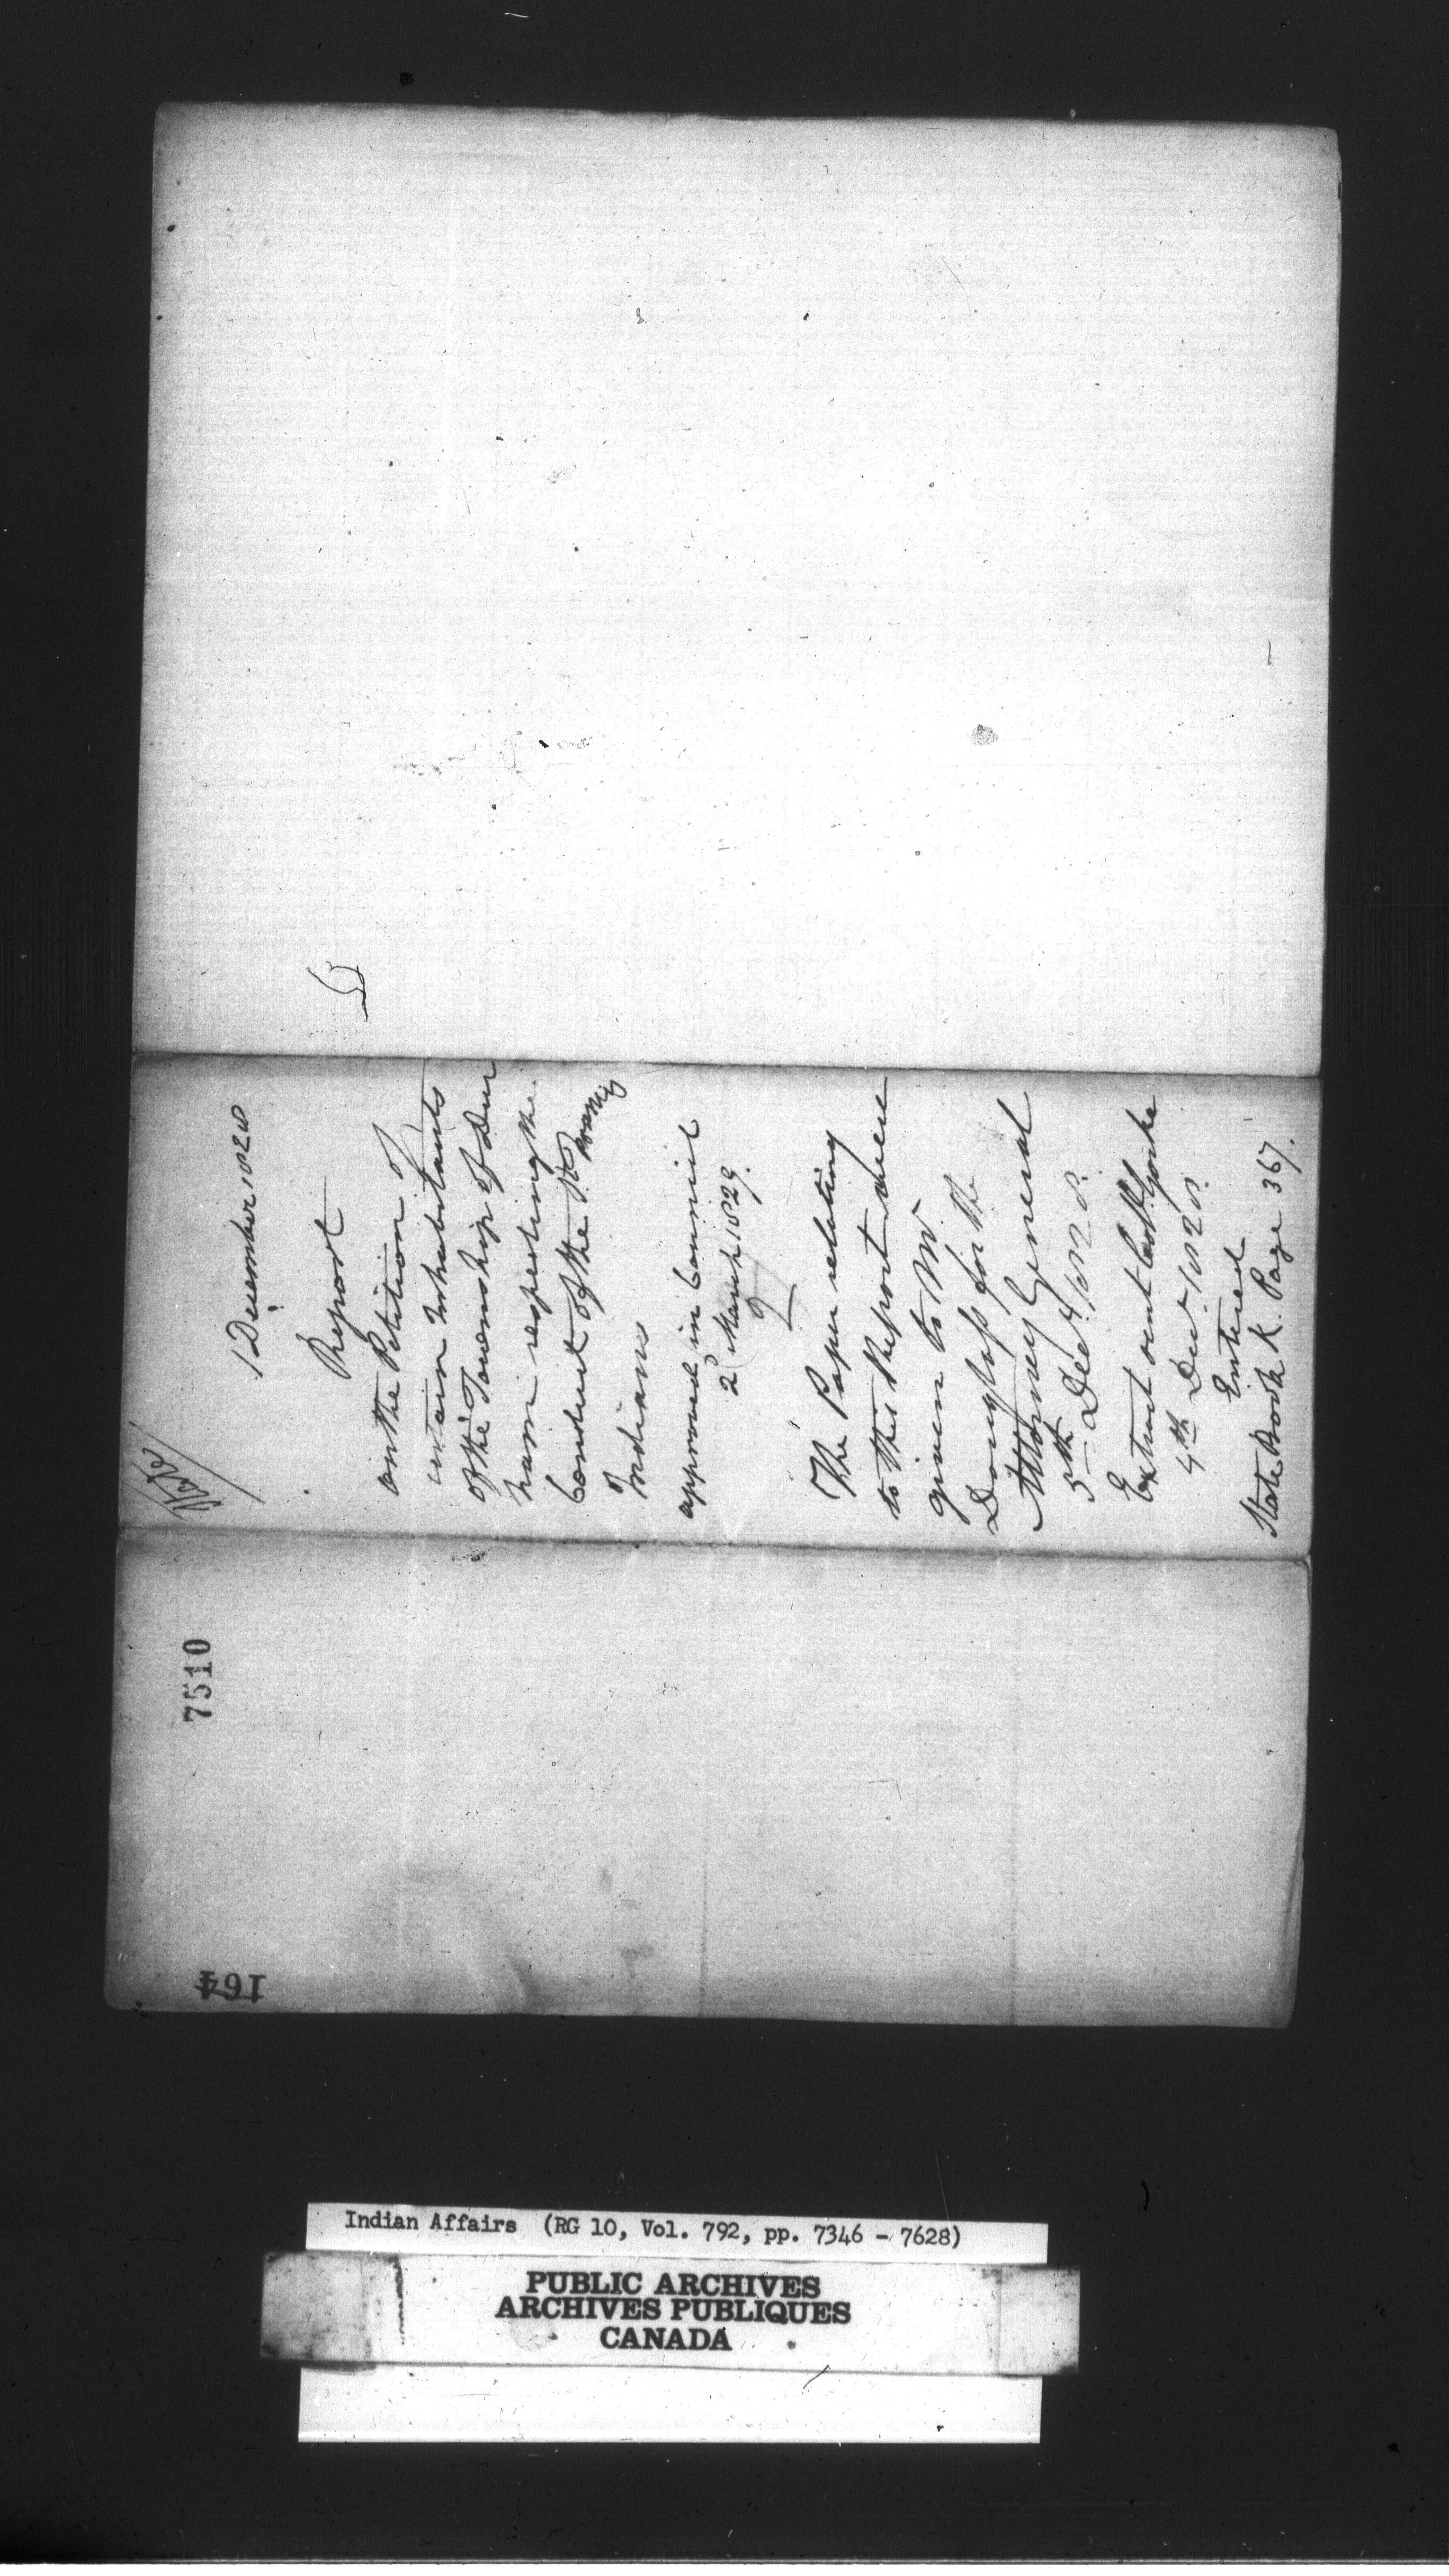 State
1 December 1828
Report
on the Petition of
certain Inhabitants
of the Township of Dun
ham respecting the
Conduct of the St. Francis
Indians
approved in Council
2d March 1829.
The Paper relating
to this Report were
given to Mr.
for the
Attorney General
5th Dec. 1828.
Extract sent
4th Decr. 1828.
Entered
State Book K. Page 367.
7510
164
Indian Affairs (RG 10, Vol. 792, pp. 7346 - 7628)
PUBLIC ARCHIVES
ARCHIVES PUBLIQUES
CANADA